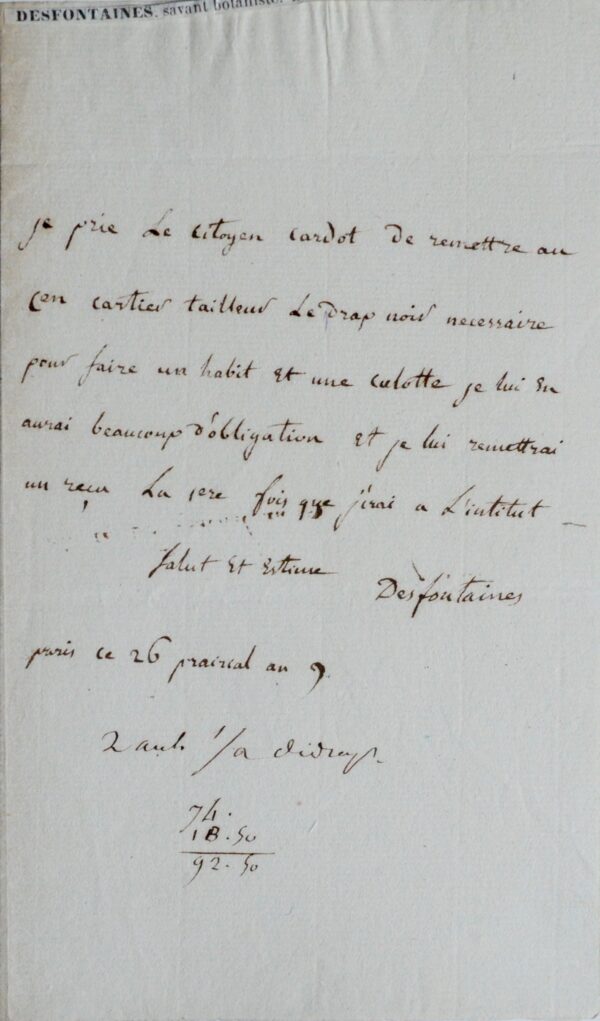 DESFONTAINES, savant botaniste.
je prie Le citoyen cardot De remettre au
çen cartier tailleur Le Drap noir necessaire
pour faire un habit Et une culotte je lui En
aurai beaucoup D'obligation Et je lui remettrai
un reçu La 1ere fois que j'irai a L'intitut
Salut Et Estime
Desfontaines
paris ce 26 prairial an 9.
2 aunes
74.
18.50
92.50